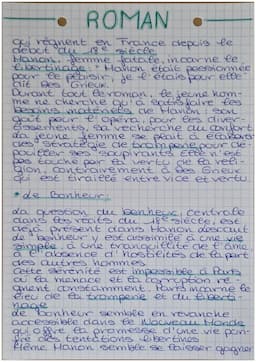 ROMAN
qui règnent en France depuis le
début du 18e siècle.
Manon, femme fatale, incarne le
libertinage : "Manon était passionnée
pour le plaisir, je l'étais pour elle"
dit Des Grieux.
Durant tout le roman, le jeune hom-
me ne cherche qu'à satisfaire les
besoins matériels de Manon : son
goût pour l'opéra, pour les diver-
tissements, sa recherche du confort
la jeune femme se plaît à élaborer
des stratégie de tromperie pour dé-
pouiller ses soupirants. Elle n'est
pas touchée par la vertu de la reli-
gion, contrairement à Des Grieux
qui est tiraillé entre vice et vertu.
• Le Bonheur:
La question du bonheur, centrale
dans les récits du siècle, est
déjà présent dans Manon Lescaut
le bonheur y est assimilé à une vie
simple, à une tranquilité de l'âme
à l'absence d'hostilités de la part
des autres hommes.
Cette sérénité est impossible à Paris
où la menace et la corruption rè-
gnent constamment. Paris incarne le
lieu de la tromperie et du liberti-
nage
Le bonheur semble en revanche
accessible dans le Nouveau Monde
qui offre la promesse d'une vie loin
des tentations libertines
Même Manon semble se laisser gagner